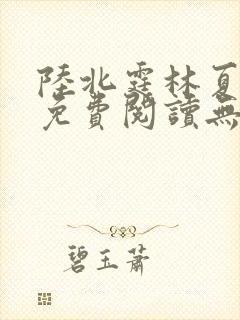 陸北霆林夏
免費閱讀無
碧玉蕭